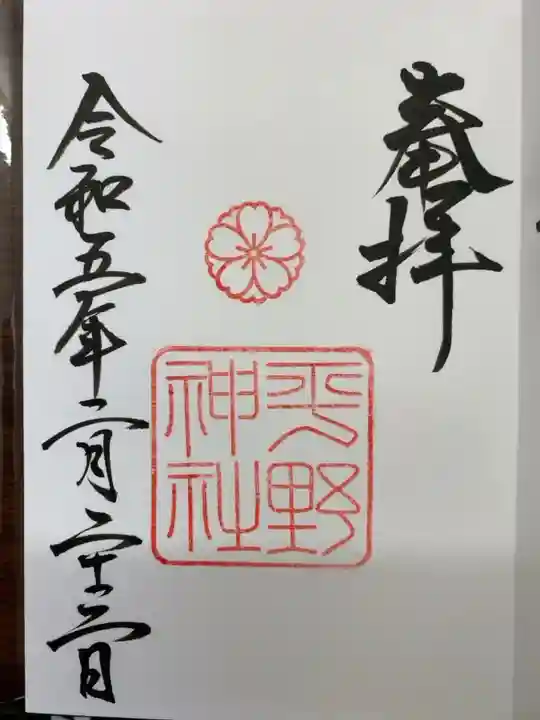 奉拝
平野
神社
令和五年二月二十二日